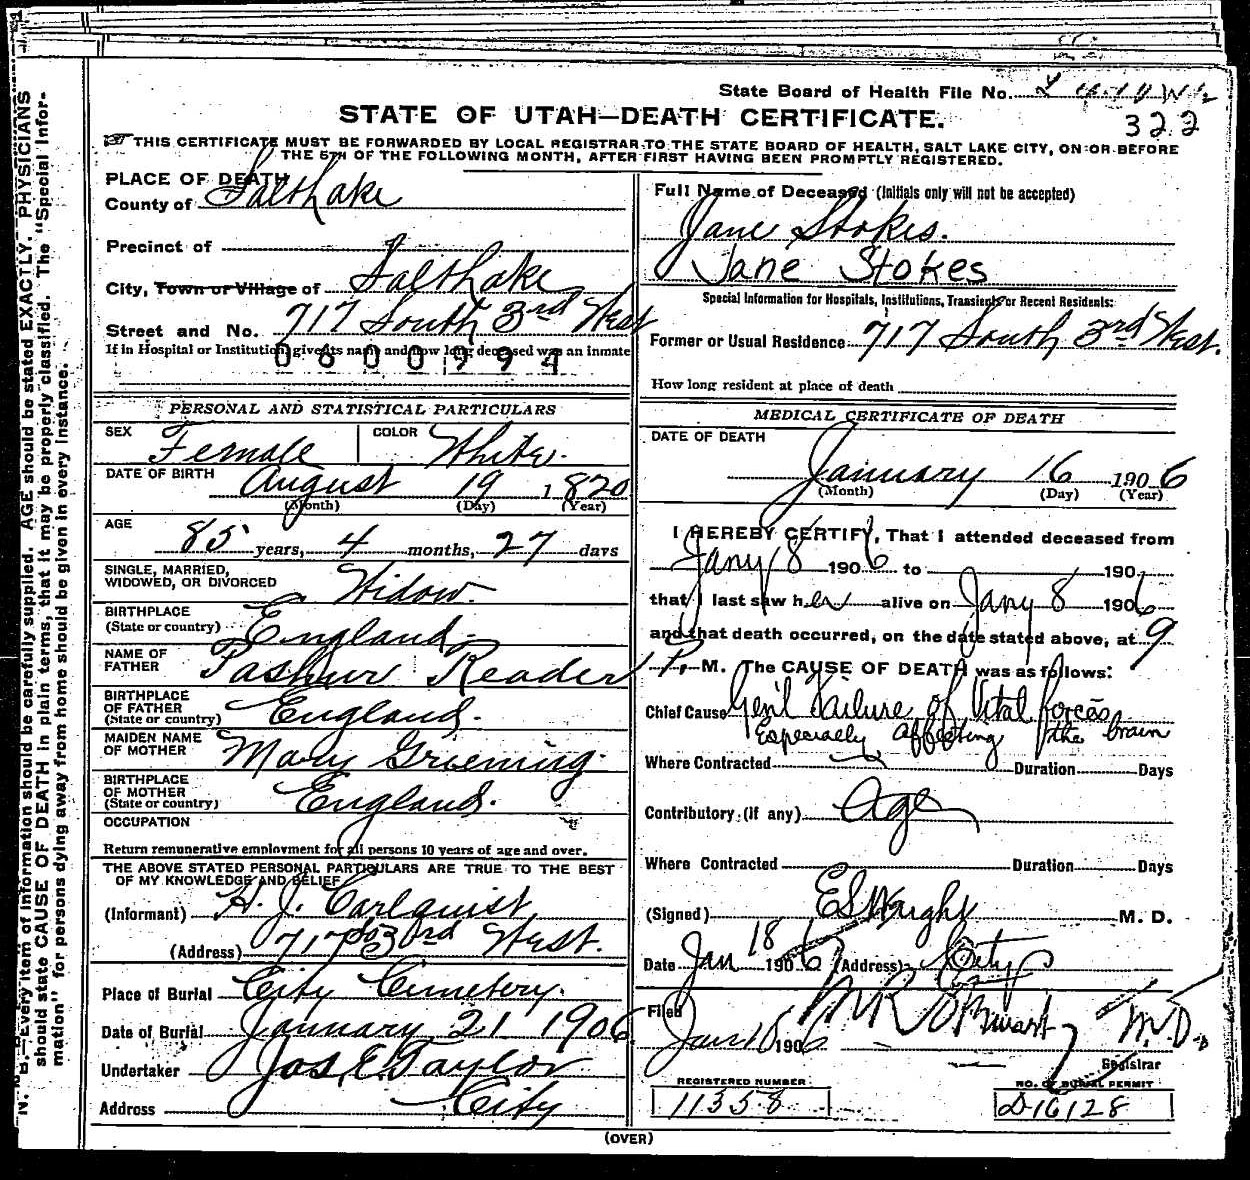 State Board of Health File No.
322
STATE OF UTAH—DEATH CERTIFICATE.
THIS CERTIFICATE MUST BE FORWARDED BY LOCAL REGISTRAR TO THE STATE BOARD OF HEALTH, SALT LAKE CITY, ON OR BEFORE
THE 5TH OF THE FOLLOWING MONTH, AFTER FIRST HAVING BEEN PROMPTLY REGISTERED.
PLACE OF DEATH
County of Salt Lake
Precinct of
City, Town or Village of Salt Lake
Street and No. 717 South 3rd West
If in Hospital or Institution, give its name and how long deceased was an inmate
0600994
PERSONAL AND STATISTICAL PARTICULARS
SEX Female COLOR White.
DATE OF BIRTH August 19 1820
(Month) (Day) (Year)
AGE 85 years, 4 months, 27 days
SINGLE, MARRIED,
WIDOWED, OR DIVORCED Widow.
BIRTHPLACE
(State or country) England.
NAME OF
FATHER Pashur Reader
BIRTHPLACE
OF FATHER
(State or country) England.
MAIDEN NAME
OF MOTHER Mary
BIRTHPLACE
OF MOTHER
(State or country) England.
OCCUPATION
Return remunerative employment for all persons 10 years of age and over.
THE ABOVE STATED PERSONAL PARTICULARS ARE TRUE TO THE BEST
OF MY KNOWLEDGE AND BELIEF
(Informant) H. J. Carlquist
(Address) 717 So 3rd West.
Place of Burial City Cemetery.
Date of Burial January 21 1906
Undertaker Jos. E. Taylor
Address City
Full Name of Deceased (Initials only will not be accepted)
Jane Stokes.
Jane Stokes
Special Information for Hospitals, Institutions, Transients or Recent Residents:
Former or Usual Residence 717 South 3rd West.
How long resident at place of death
MEDICAL CERTIFICATE OF DEATH
DATE OF DEATH
January 16 1906
(Month) (Day) (Year)
I HEREBY CERTIFY, That I attended deceased from
Jany 8 1906 to 190
that I last saw her alive on Jany 8 1906
and that death occurred, on the date stated above, at 9
P. M. The CAUSE OF DEATH was as follows:
Chief Cause Gen'l Failure of Vital forces
Especially affecting the brain
Where Contracted Duration Days
Contributory (if any) Age
Where Contracted Duration Days
(Signed) E S Wright M. D.
Date Jan 18 1906 (Address) City
Filed M R Stewart M.D.
Jan 1906
Registrar
REGISTERED NUMBER
11358
NO. OF BURIAL PERMIT
D16128
(OVER)
N. B.—Every item of information should be carefully supplied. AGE should be stated EXACTLY. PHYSICIANS
should state CAUSE OF DEATH in plain terms, that it may be properly classified. The "Special Infor-
mation" for persons dying away from home should be given in every instance.